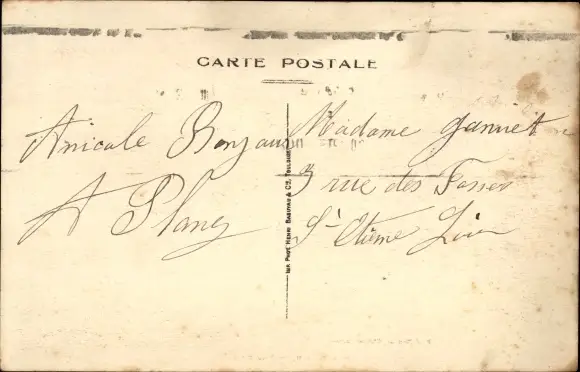 CARTE POSTALE
Amicale Bonjour
A Planez
Madame Jannet
3 rue des Fosses
St Etiene Loire
IMP. PHOT. HENRI BASUYAU & CO, TOULOUSE